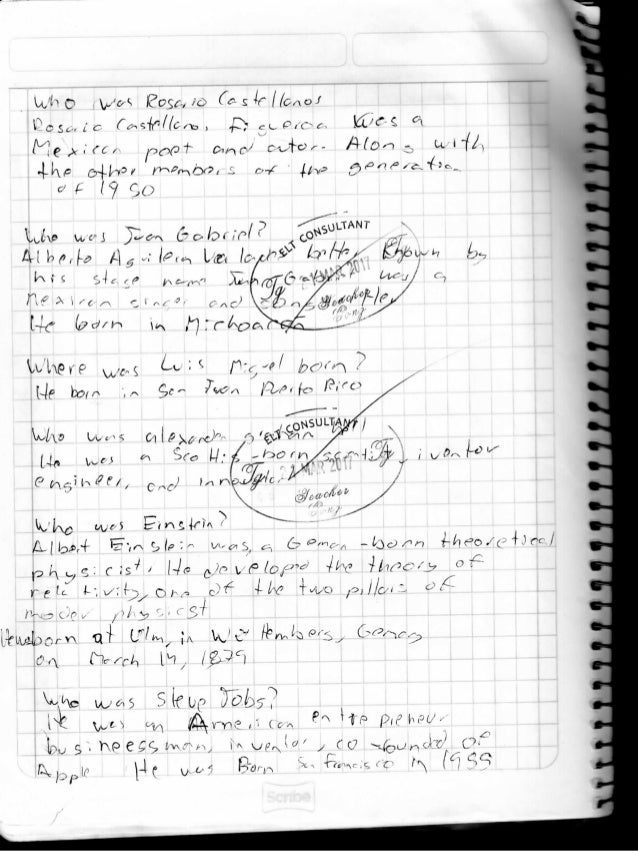 who was Rosario Castellanos
Rosario Castellano, Figueroa was a
Mexican poet and autor. Along with
the other members of the generation
of 1950
Who was Juan Gabriel?
ELT CONSULTANT
Alberto Aguilera Known by
his stage name Juan was a
Mexican singer and
MAR 2017
Teacher
He born in Michoacan
Where was Luis Miguel born?
He born in San Juan Puerto Rico
ELT CONSULTANT
Who was alexander
He was a Scottish-born scientific, iventor
MAR 2017
engineer, and
Teacher
Who was Einstein?
Albert Einslein was, a Geman-born theoretical
physicist, He developed the theory of
relativity, one of the two pillars of
moder physicst
He was born at Ulm, in
on March 14, 1879
Who was Steve Jobs?
was an American entrepreneur
busineessman, inventor, co-founded of
Apple He was Born San francisco in 1955
Scribe